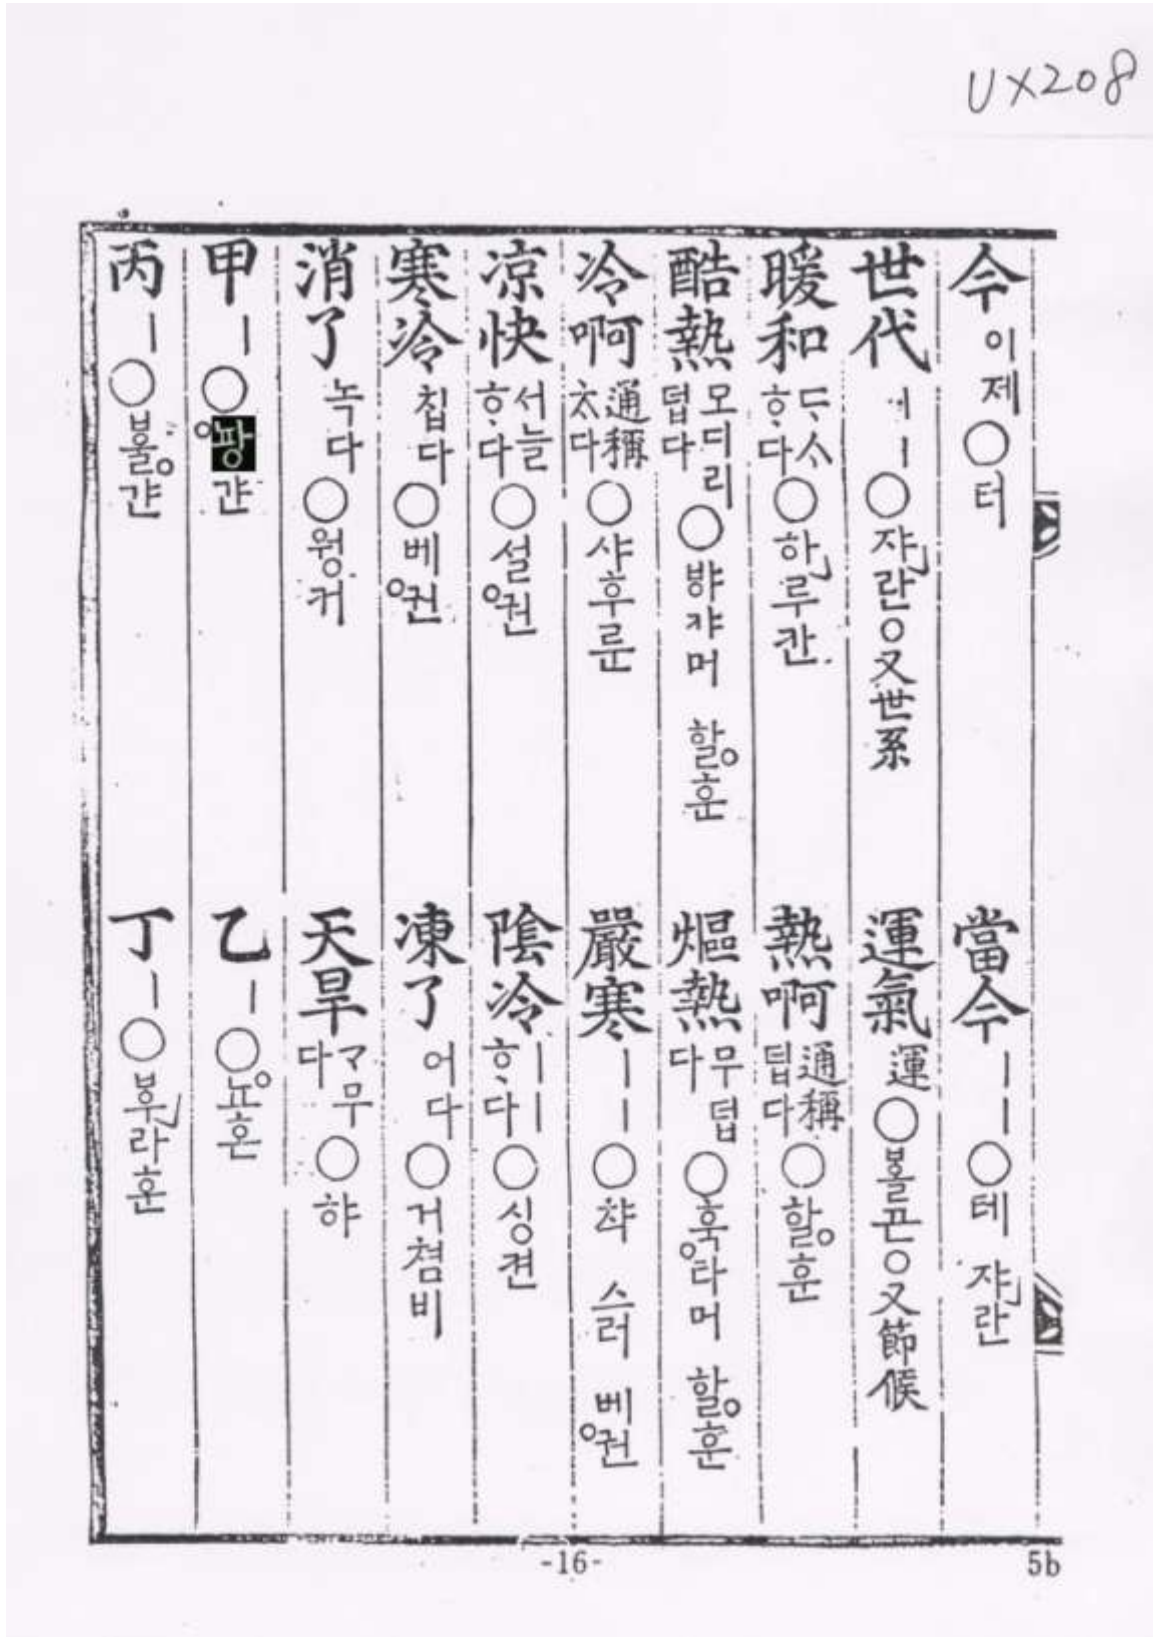 UX208
今 이제 ○ 터
當今 丨丨 ○ 테 쟈란
世代 丨丨 ○ 쟈란 ○ 又世系
運氣 運 ○ 볼꼰 ○ 又節候
暖和 ᄃᆞᄉᆞᄒᆞ다 ○ 하루칸
熱啊 通稱덥다 ○ 할훈
酷熱 모디리덥다 ○ 뱌쟈머 할훈
熰熱 무덥다 ○ 훅타머 할훈
冷啊 通稱太다 ○ 샤후룬
嚴寒 丨丨 ○ 챡 스러 베퀀
凉快 서늘ᄒᆞ다 ○ 설퀀
陰冷 丨丨ᄒᆞ다 ○ 싱견
寒冷 칩다 ○ 베퀀
凍了 어다 ○ 거쳠비
消了 녹다 ○ 웡커
天旱 ᄀᆞ무다 ○ 햐
甲 丨 ○ 퍙갼
乙 丨 ○ 뇨혼
丙 丨 ○ 불갼
丁 丨 ○ 부라훈
-16-
5b